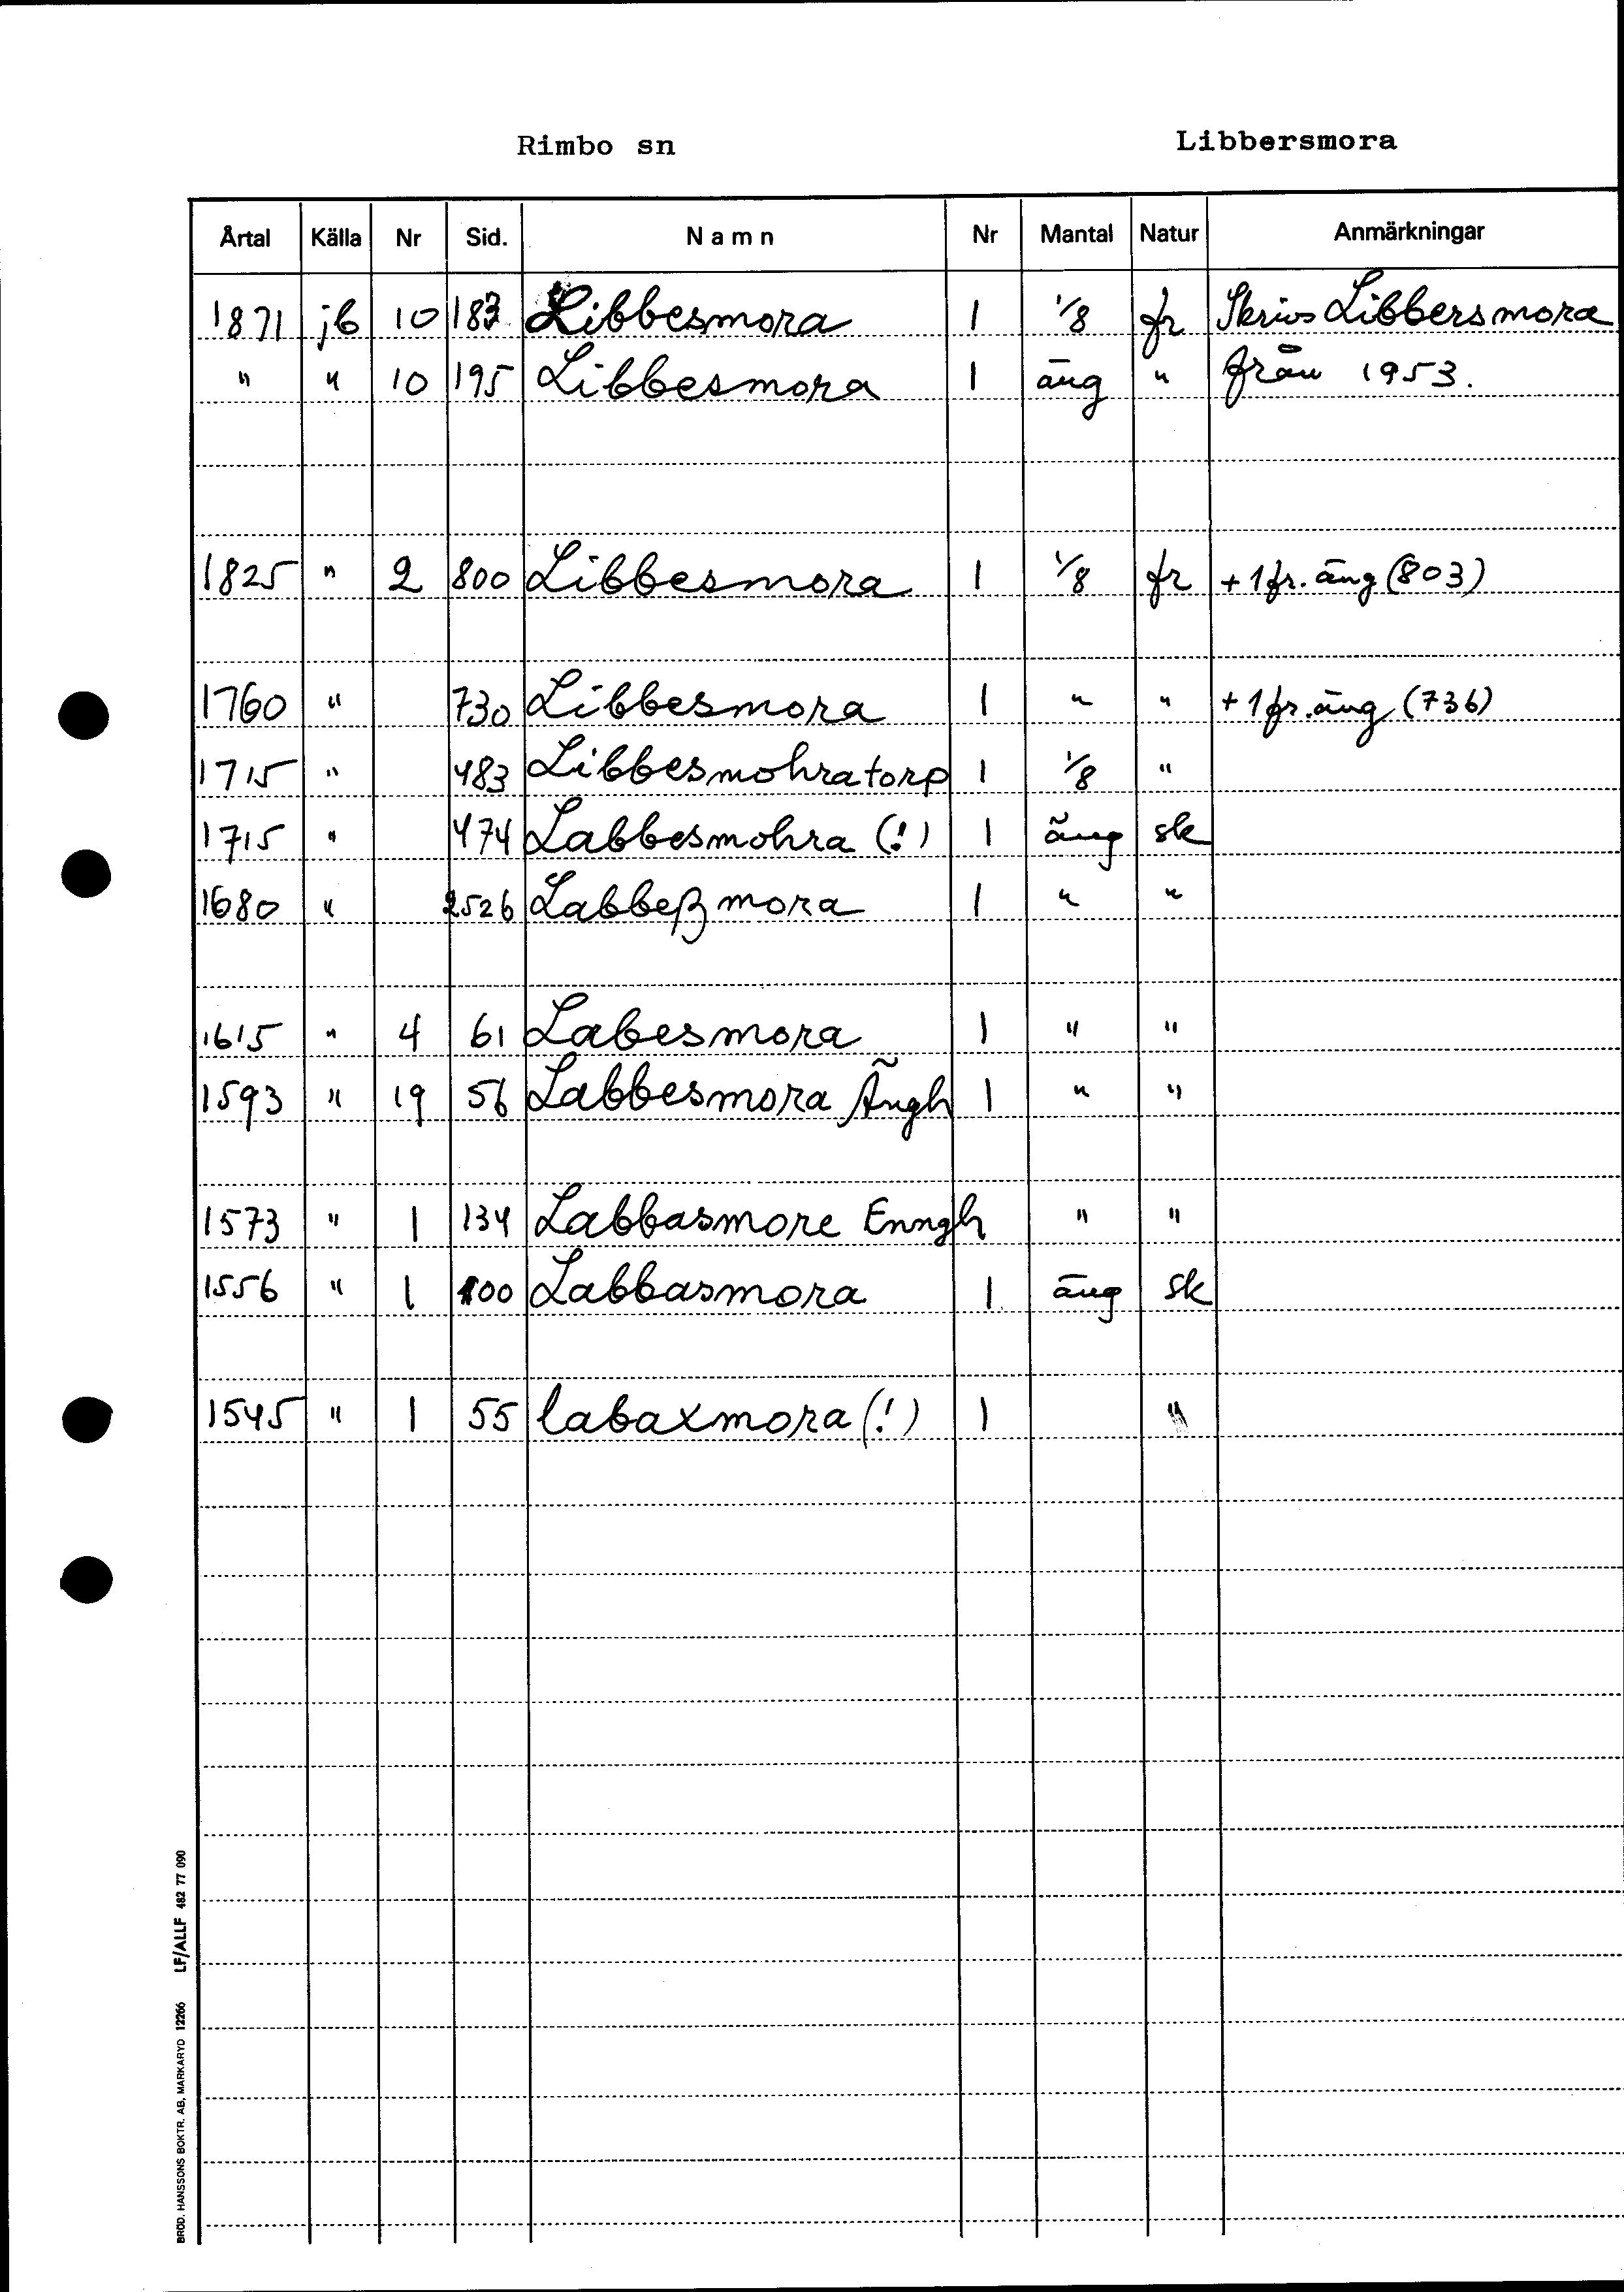 Rimbo sn Libbersmora
Årtal Källa Nr Sid. Namn Nr Mantal Natur Anmärkningar
1871 jb 10 183 Libbesmora 1 1/8 fr Skrivs Libbersmora
" " 10 195 Libbesmora 1 äng " från 1953.
1825 " 2 800 Libbesmora 1 1/8 fr + 1 fr. äng (803)
1760 " 730 Libbesmora 1 " " + 1 fr. äng (736)
1715 " 483 Libbesmohratorp 1 1/8 "
1715 " 474 Labbesmohra (!) 1 äng sk
1680 " 2526 Labbeßmora 1 " "
1615 " 4 61 Labesmora 1 " "
1593 " 19 56 Labbesmora Ãngh 1 " "
1573 " 1 134 Labbasmore Enngh " "
1556 " 1 100 Labbasmora 1 äng sk
1545 " 1 55 labaxmora (!) 1 "
BRÖD. HANSSONS BOKTR. AB, MARKARYD 12266 LF/ALLF 482 77 090